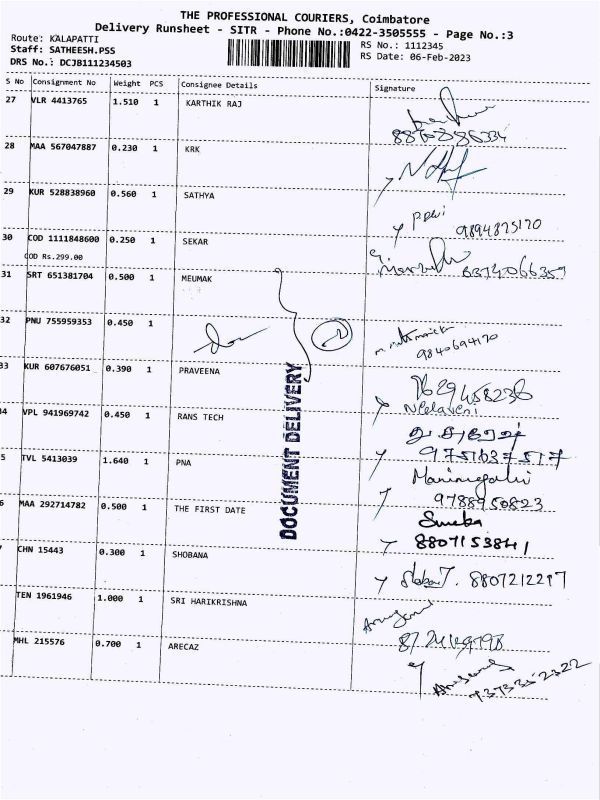 THE PROFESSIONAL COURIERS, Coimbatore
Delivery Runsheet - SITR - Phone No.:0422-3505555 - Page No.:3
Route: KALAPATTI
RS No.: 1112345
Staff: SATHEESH.PSS
RS Date: 06-Feb-2023
DRS No.: DCJB111234503
S No Consignment No Weight PCS Consignee Details Signature
27 VLR 4413765 1.510 1 KARTHIK RAJ
28 MAA 567047887 0.230 1 KRK
29 KUR 528838960 0.560 1 SATHYA
9894875170
30 COD 1111848600 0.250 1 SEKAR
COD Rs.299.00
31 SRT 651381704 0.500 1 MEUMAK
32 PNU 755959353 0.450 1
2
9840694170
33 KUR 607676051 0.390 1 PRAVEENA
7629458236
Neelaveni
34 VPL 941969742 0.450 1 RANS TECH
9751637517
5 TVL 5413039 1.640 1 PNA
9788950823
6 MAA 292714782 0.500 1 THE FIRST DATE
8807153841
7 CHN 15443 0.300 1 SHOBANA
8807212217
TEN 1961946 1.000 1 SRI HARIKRISHNA
MHL 215576 0.700 1 ARECAZ
DOCUMENT DELIVERY